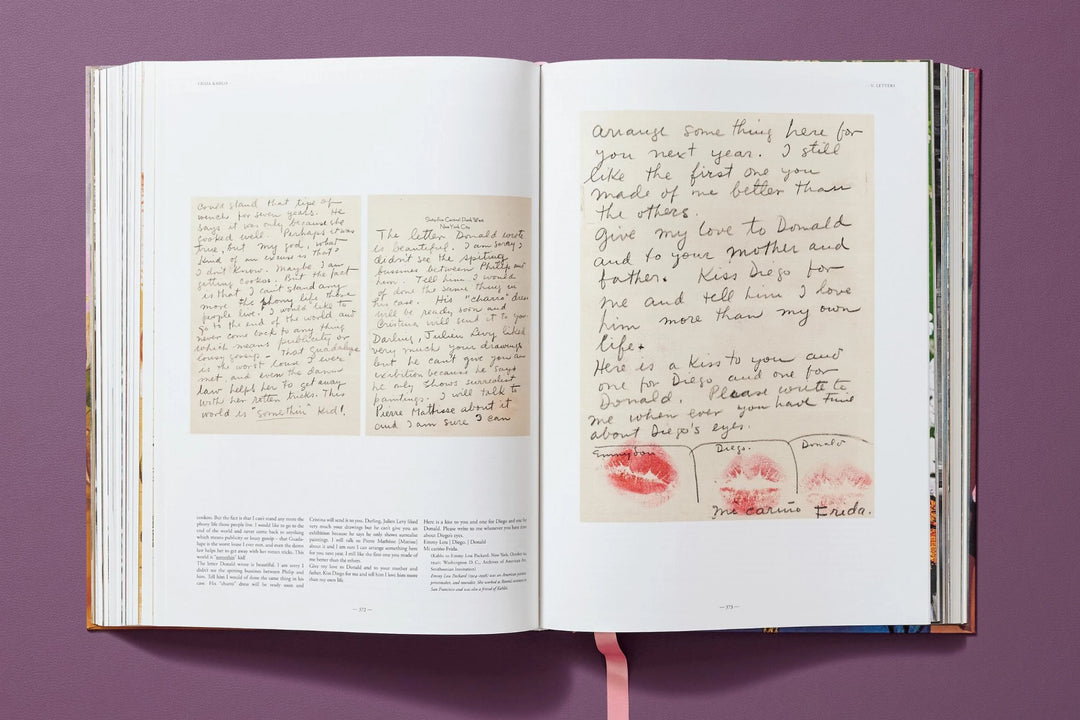 FRIDA KAHLO
could stand that type of
wench for seven years. He
says it was only because she
cooked well. Perhaps it was
true, but my god, what
kind of an excuse is that?
I don't know. Maybe I am
getting cookoo. But the fact
is that I can't stand any
more the phony life those
people live. I would like to
go to the end of the world and
never come back to any thing
which means publicity or
lousy gossip – That Guadalupe
is the worst louse I ever
met, and even the damn
law helps her to get away
with her rotten tricks. This
world is "somethin" Kid!.
Central Park West
New York City
The letter Donald wrote
is beautiful. I am sorry I
didn't see the spiting
bussines between Philip and
him. Tell him I would
of done the same thing in
his case. His "charro" dress
will be ready soon and
Cristina will send it to you.
Darling, Julien Levy liked
very much your drawings
but he can't give you an
exibition because he says
he only shows surrealist
paintings. I will talk to
Pierre Mathisse about it
and I am sure I can
cookoo. But the fact is that I can't stand any more the
phony life those people live. I would like to go to the
end of the world and never come back to anything
which means publicity or lousy gossip – that Guada-
lupe is the worst louse I ever met, and even the damn
law helps her to get away with her rotten tricks. This
world is "somethin" kid!
The letter Donald wrote is beautiful. I am sorry I
didn't see the spitting bussines between Philip and
him. Tell him I would of done the same thing in his
case. His "charro" dress will be ready soon and
Cristina will send it to you. Darling, Julien Levy liked
very much your drawings but he can't give you an
exhibition because he says he only shows surrealist
paintings. I will talk to Pierre Mathisse [Matisse]
about it and I am sure I can arrange something here
for you next year. I still like the first one you made of
me better than the others.
Give my love to Donald and to your mother and
father. Kiss Diego for me and tell him I love him more
than my own life.
Here is a kiss to you and one for Diego and one for
Donald. Please write to me whenever you have time
about Diego's eyes.
Emmy Lou | Diego. | Donald
Mi cariño Frida.
(Kahlo to Emmy Lou Packard, New York, October
Washington D. C., Archives of American Art,
Smithsonian Institution)
Emmy Lou Packard (1914–1998) was an American painter,
printmaker, and muralist. She worked
San Francisco and was also a friend of Kahlo.
— 372 —
V. LETTERS
arrange some thing here for
you next year. I still
like the first one you
made of me better than
the others.
Give my love to Donald
and to your mother and
father. Kiss Diego for
me and tell him I love
him more than my own
life.
Here is a Kiss to you and
one for Diego and one for
Donald. Please write to
me when ever you have time
about Diego's eyes.
Emmylou Diego. Donald
Mi cariño Frida.
— 373 —